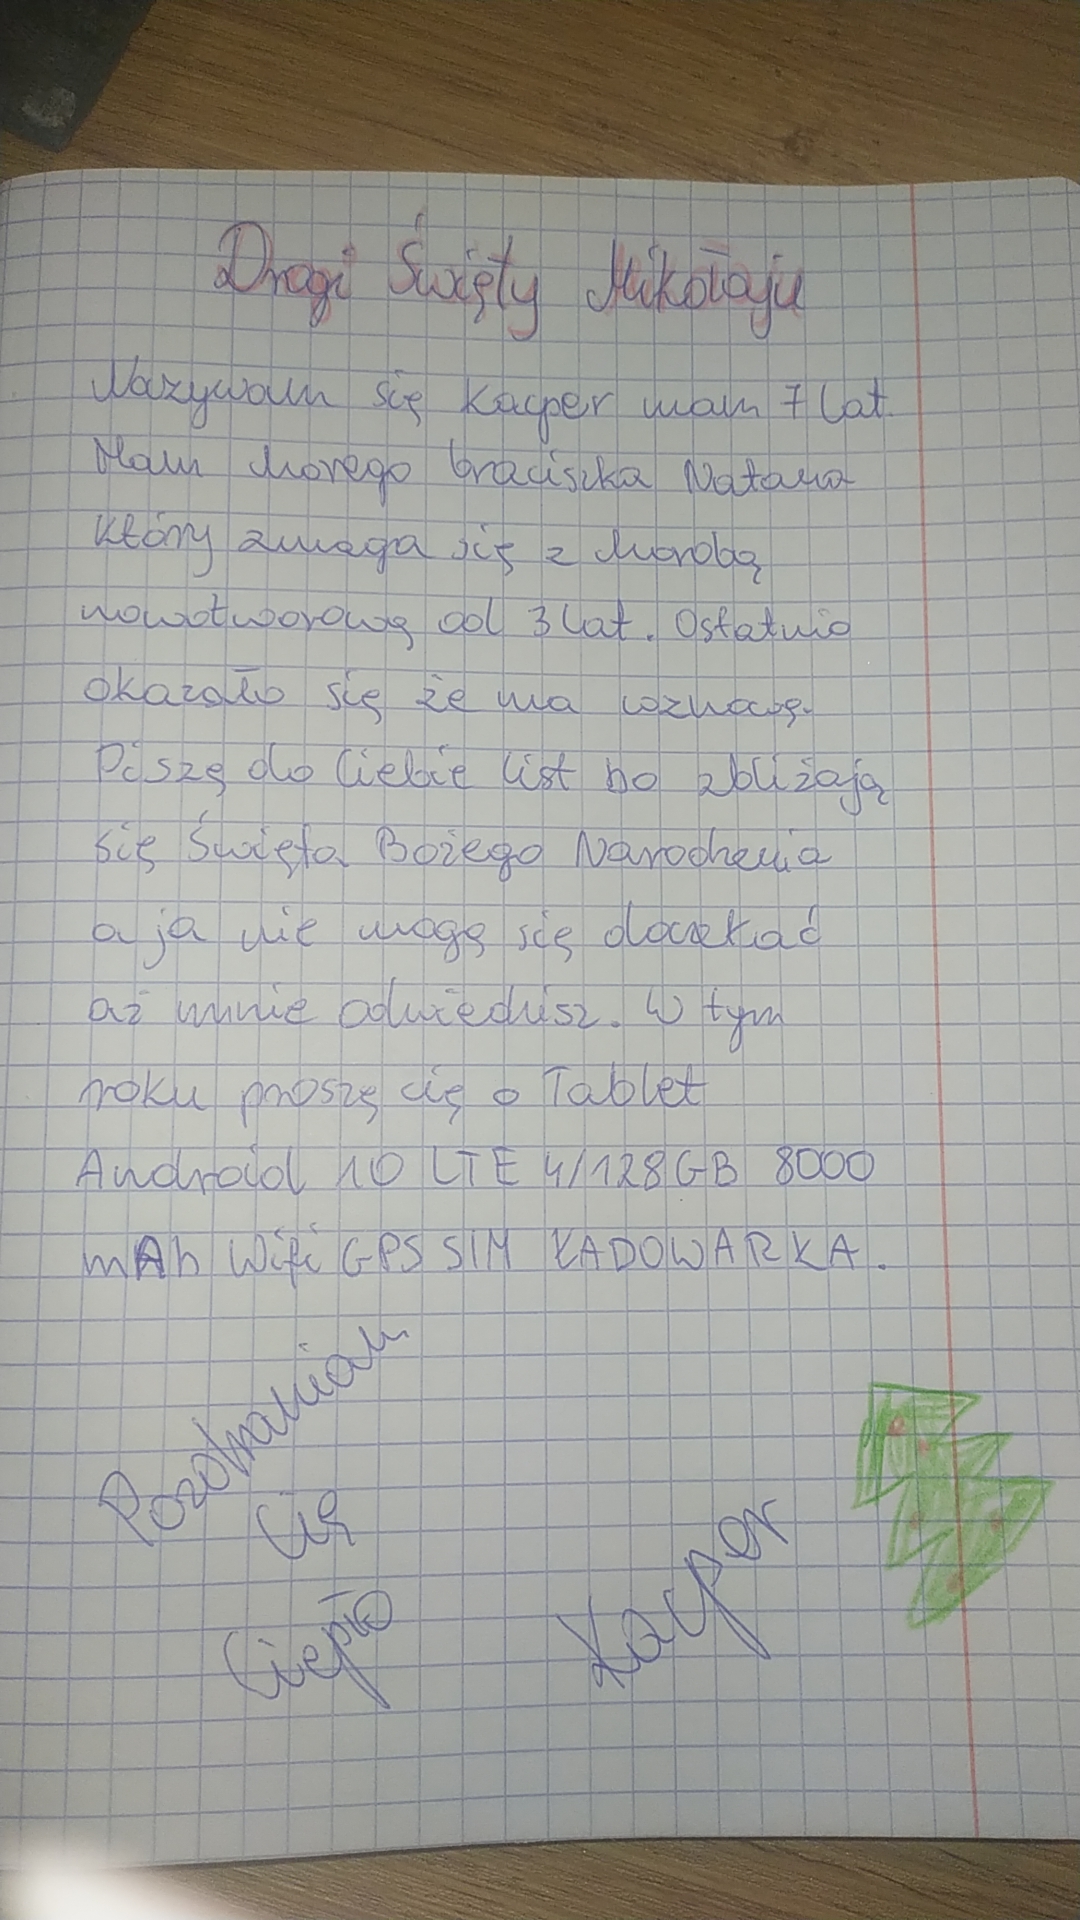 Drogi Święty Mikołaju
Nazywam się Kacper mam 7 lat
Mam chorego braciszka Natana
który zmaga się z chorobą
nowotworową od 3 lat. Ostatnio
okazało się że ma wznowę.
Piszę do Ciebie list bo zbliżają
się Święta Bożego Narodzenia
a ja nie mogę się doczekać
aż mnie odwiedzisz. W tym
roku proszę cię o Tablet
Android 10 LTE 4/128GB 8000
mAh Wifi GPS SIM ŁADOWARKA.
Pozdrawiam
Cię
Ciepło
Kacper